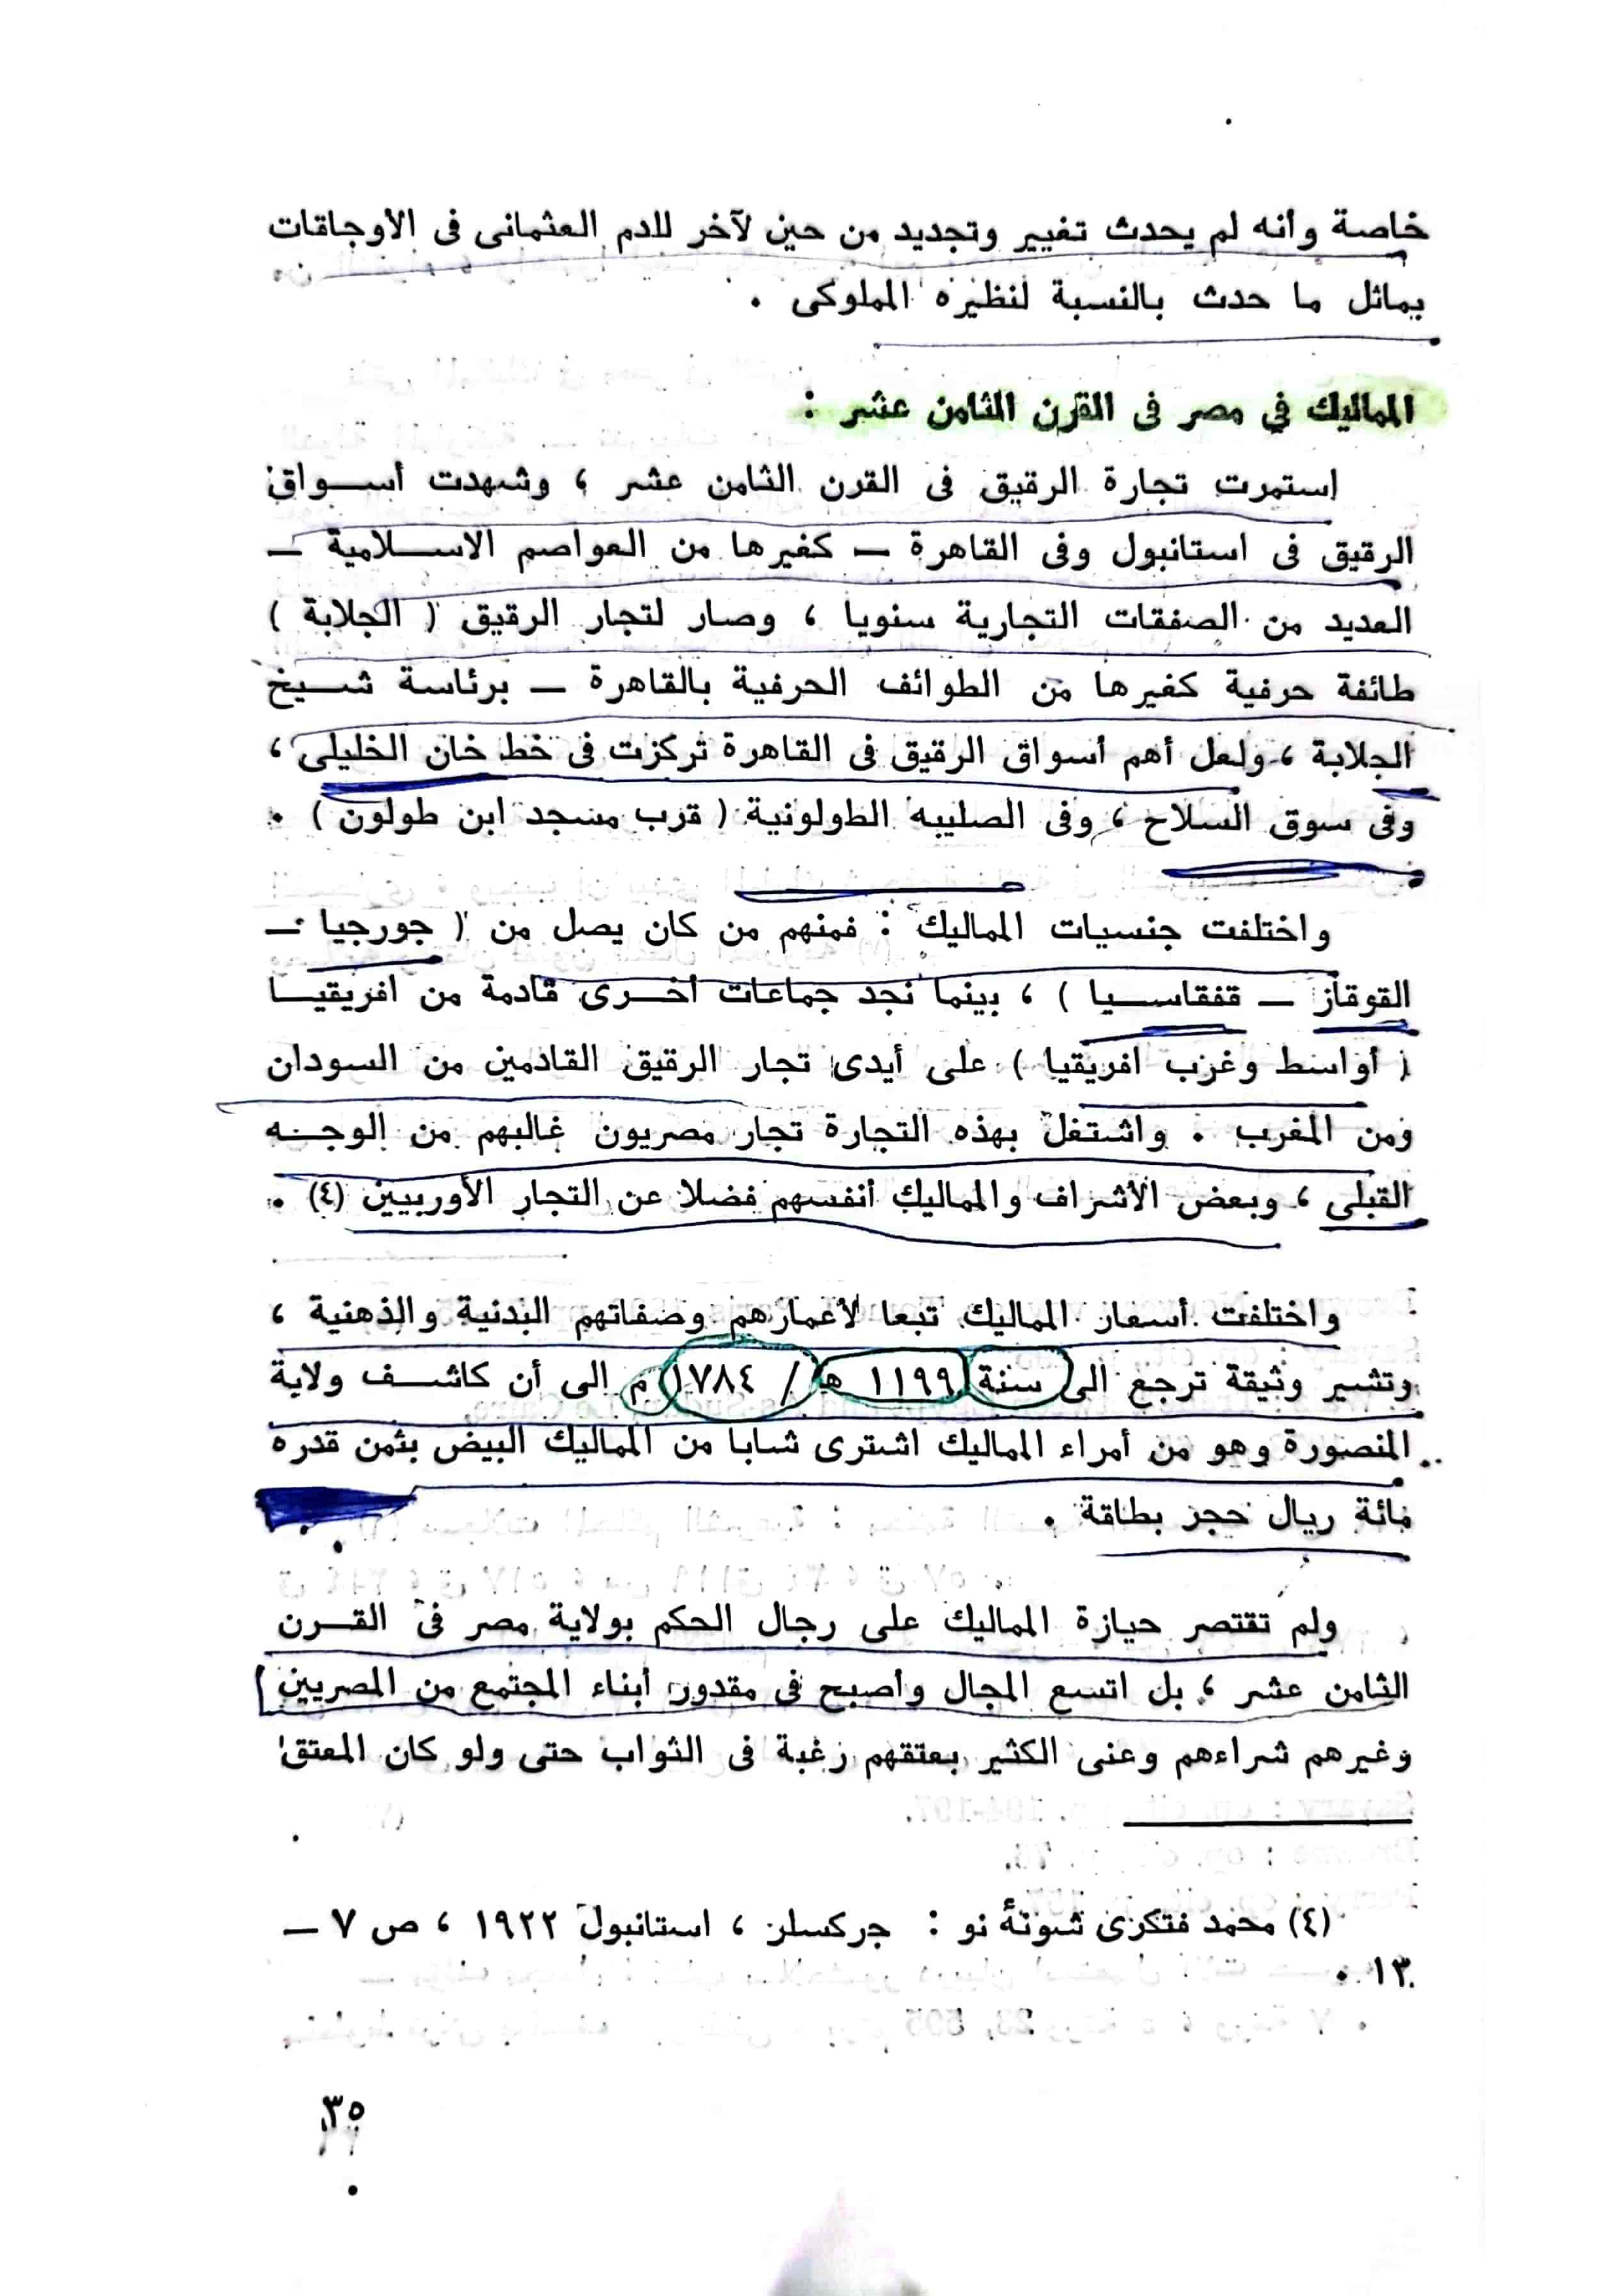 خاصة وأنه لم يحدث تغيير وتجديد من حين لآخر للدم العثمانى فى الأوجاقات
يماثل ما حدث بالنسبة لنظيره المملوكى .
المماليك في مصر فى القرن الثامن عشر :
إستمرت تجارة الرقيق فى القرن الثامن عشر ، وشهدت أسواق
الرقيق فى استانبول وفى القاهرة – كغيرها من العواصم الاسلامية –
العديد من الصفقات التجارية سنويا ، وصار لتجار الرقيق ( الجلابة )
طائفة حرفية كغيرها من الطوائف الحرفية بالقاهرة – برئاسة شيخ
الجلابة ، ولعل أهم أسواق الرقيق فى القاهرة تركزت فى خط خان الخليلى ،
وفى سوق السلاح ، وفى الصليبه الطولونية ( قرب مسجد ابن طولون ) .
واختلفت جنسيات المماليك : فمنهم من كان يصل من ( جورجيا –
القوقاز – قفقاسيا ) ، بينما نجد جماعات أخرى قادمة من افريقيا
( أواسط وغرب افريقيا ) على أيدى تجار الرقيق القادمين من السودان
ومن المغرب . واشتغل بهذه التجارة تجار مصريون غالبهم من الوجه
القبلى ، وبعض الأشراف والمماليك أنفسهم فضلا عن التجار الأوربيين (٤) .
واختلفت أسعار المماليك تبعا لأعمارهم وصفاتهم البدنية والذهنية ،
وتشير وثيقة ترجع الى سنة ١١٩٩ هـ / ١٧٨٤ م إلى أن كاشف ولاية
المنصورة وهو من أمراء المماليك اشترى شابا من المماليك البيض بثمن قدره
مائة ريال حجر بطاقة .
ولم تقتصر حيازة المماليك على رجال الحكم بولاية مصر فى القرن
الثامن عشر ، بل اتسع المجال وأصبح فى مقدور أبناء المجتمع من المصريين
وغيرهم شراءهم وعنى الكثير بعتقهم رغبة فى الثواب حتى ولو كان المعتق
(٤) محمد فتكرى شوتهٔ نو : جركسلر ، استانبول ١٩٢٢ ، ص ٧ –
١٣ .
٣٥